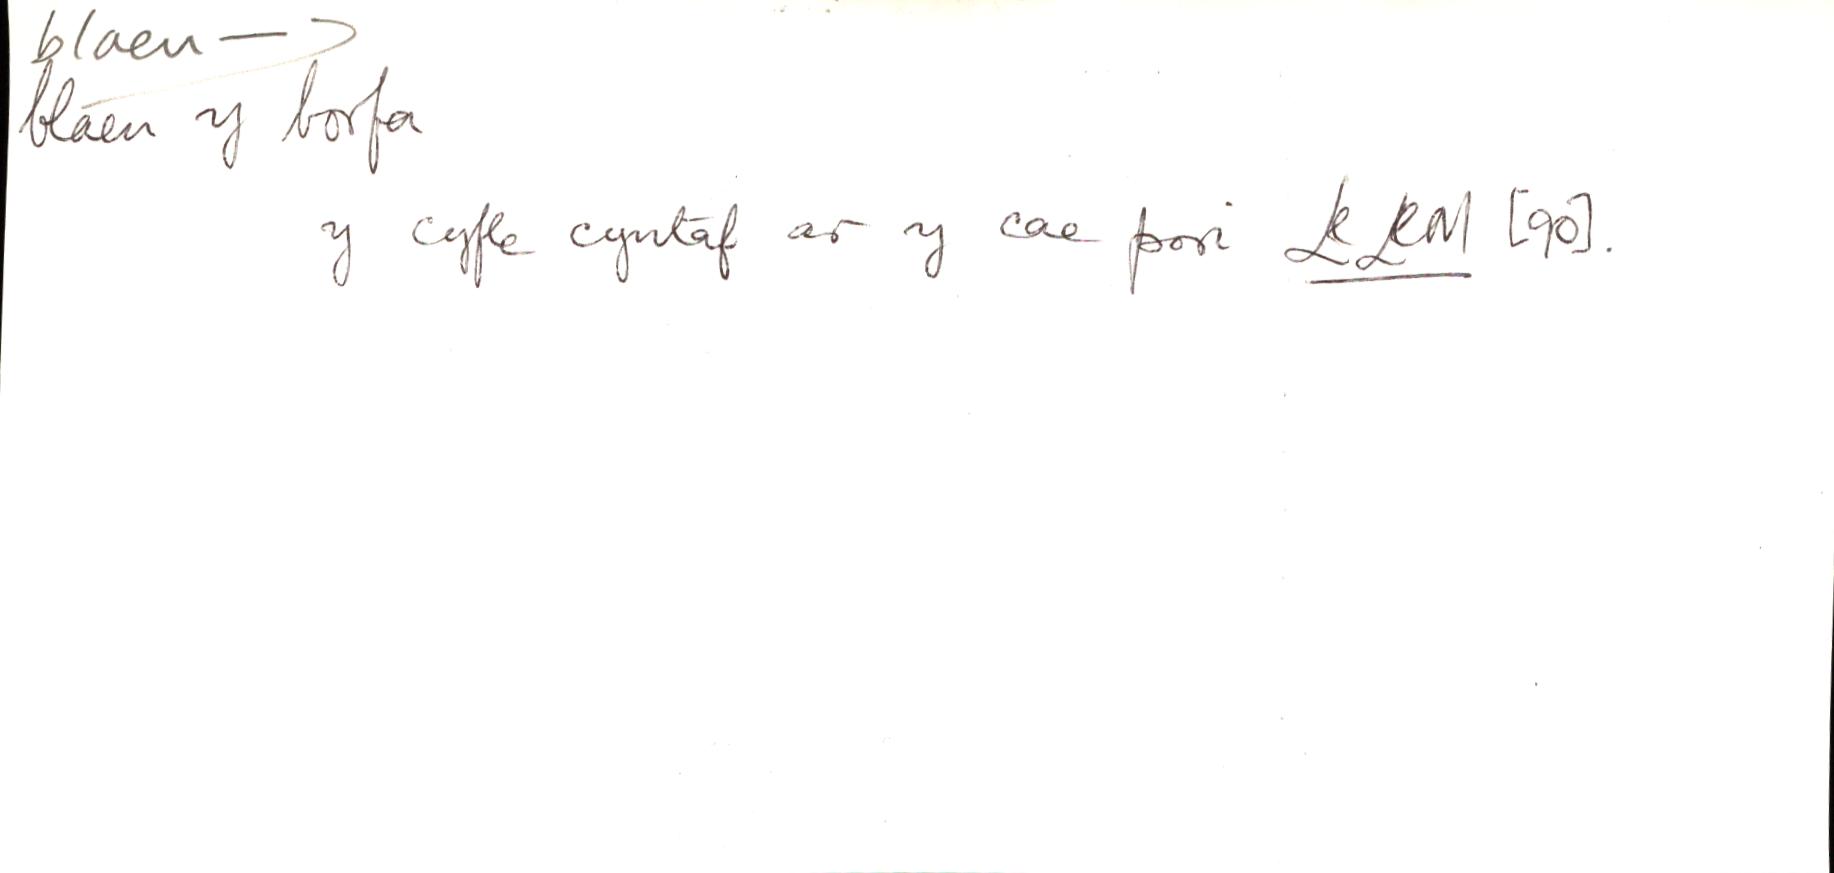 blaen →
blaen y borfa
y cyfle cyntaf ar y cae pori [90].